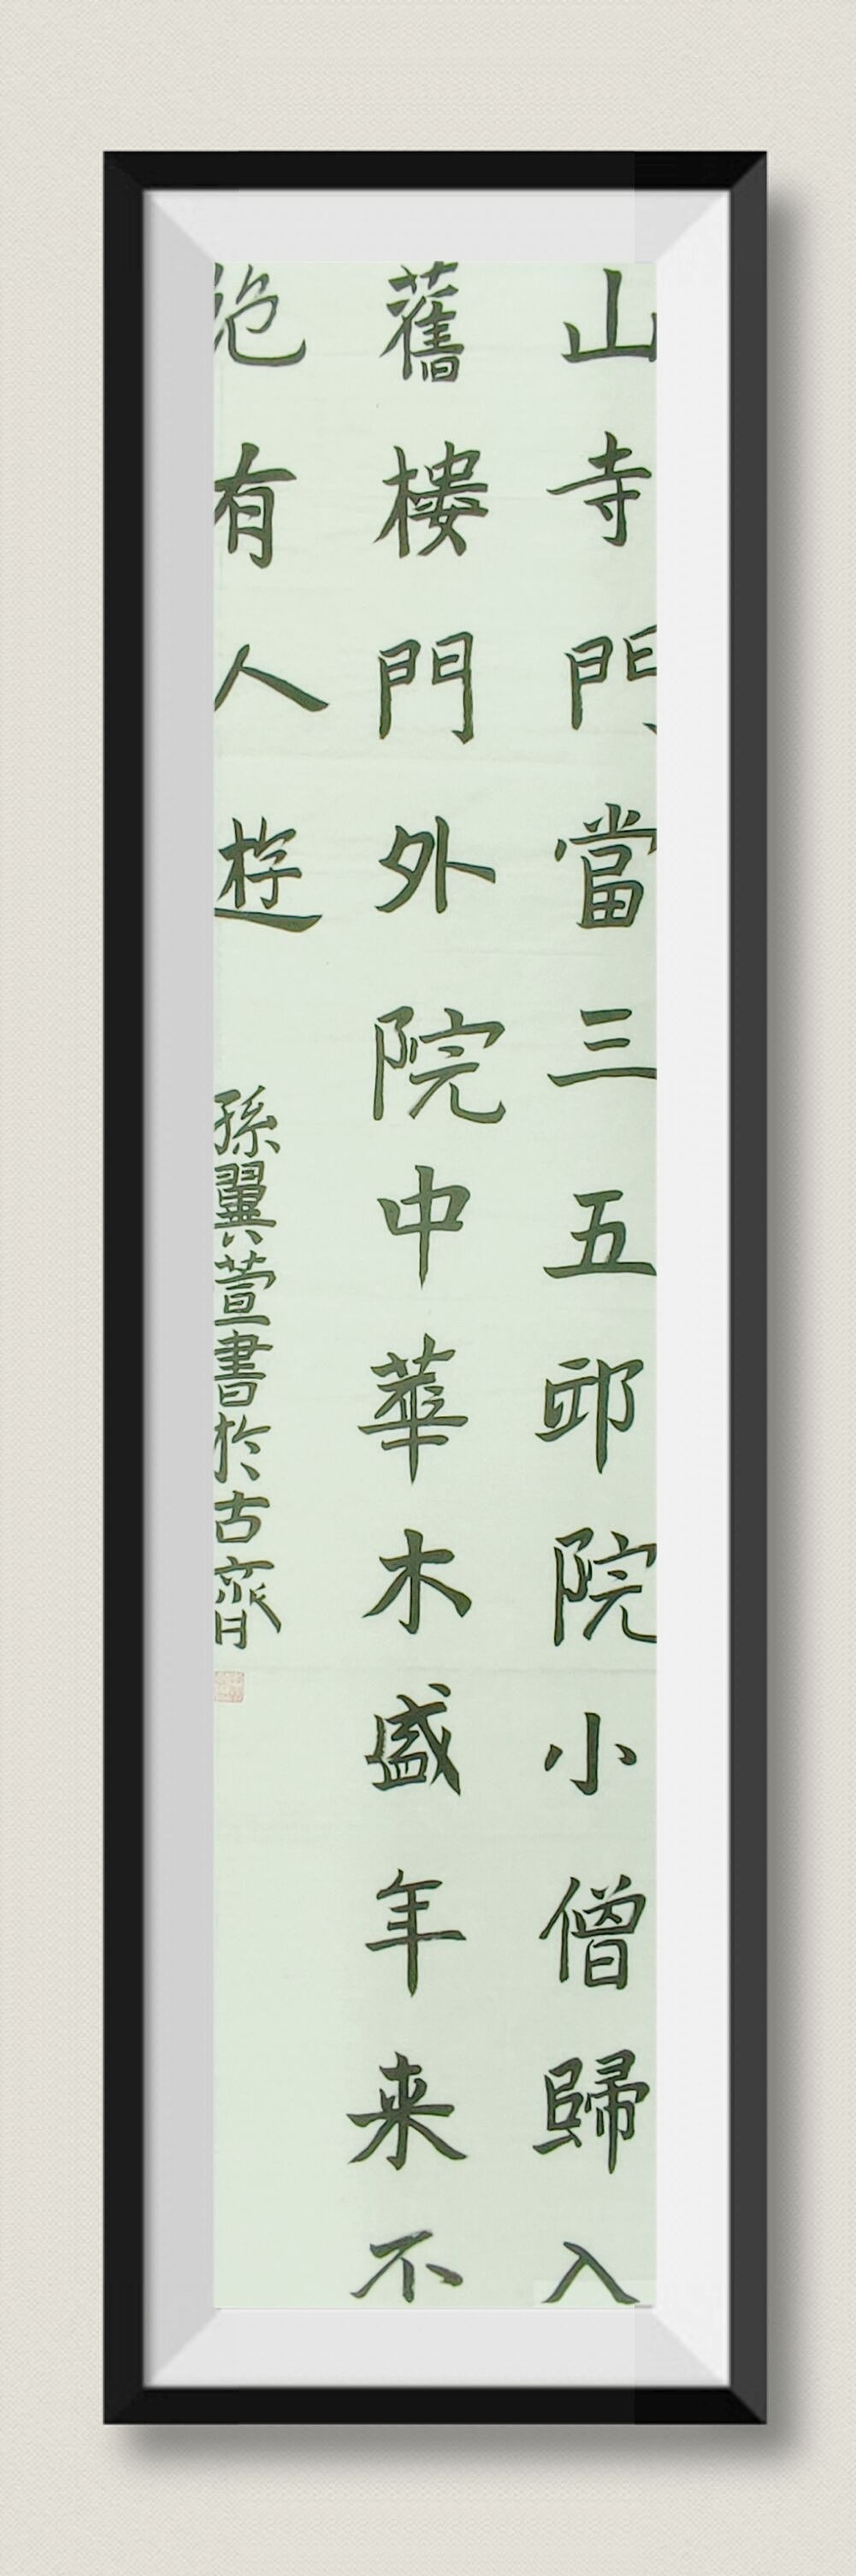 山寺門當三五印院小僧歸入
舊樓門外院中華木盛年来不
有人遊
孫翼萱書於古齋